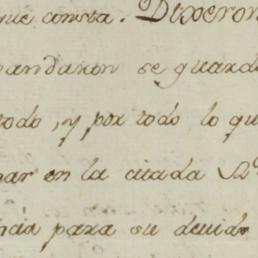 que consta. Dixeron
mandaron se guarde
todo, y por todo lo qu
nar en la citada
mas para su devido